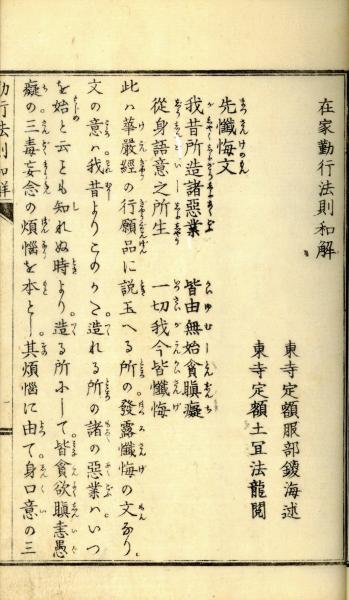 在家勤行法則和解
東寺定額服部鑁海述
東寺定額土宜法龍閲
先懺悔文
我昔所造諸惡業　皆由無始貪瞋癡
從身語意之所生　一切我今皆懺悔
此ハ華嚴經の行願品に説玉へる所の發露懺悔の文なり
文の意ハ我昔よりこのかた造れる所の諸の惡業ハいつ
を始と云とも知れぬ時より造る所にして皆貪欲瞋恚愚
癡の三毒妄念の煩惱を本とし其煩惱に由て身口意の三
勤行法則和解